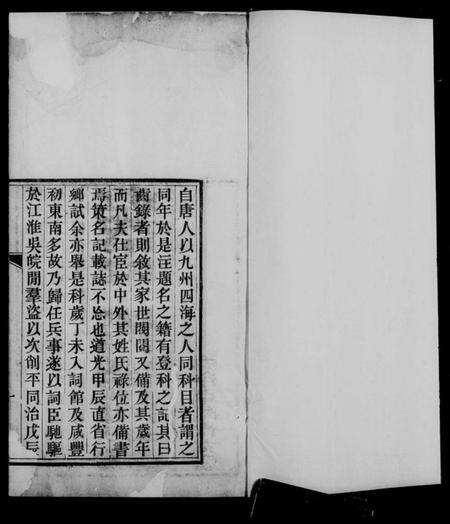 自唐人以九州四海之人同科目者謂之
同年於是注題名之籍有登科之記其曰
齒錄者則敘其家世閥閱又備及其歲年
而凡夫仕宦於中外其姓氏祿位亦備書
焉策名記載誌不諗也道光甲辰直省行
鄉試余亦舉是科歲丁未入詞館及咸豐
初東南多故乃歸任兵事遂以詞臣馳驅
於江淮吳皖閒羣盜以次創平同治戊辰